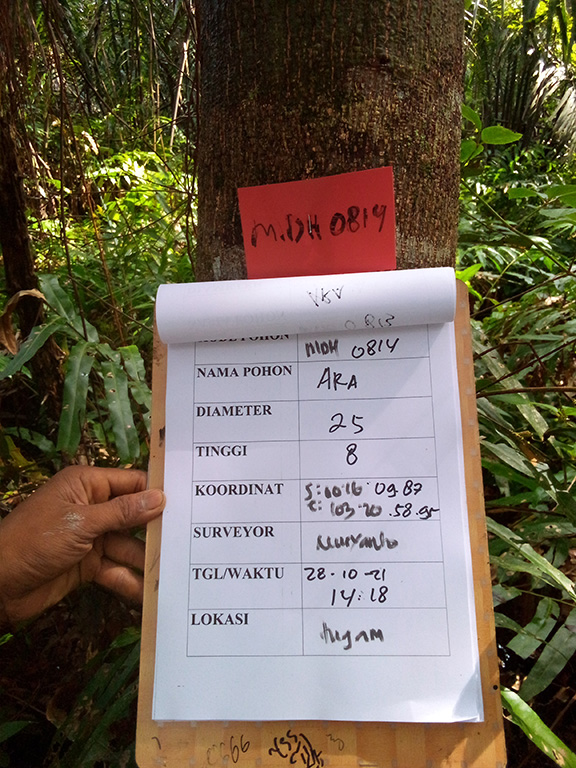 M.DH 0814
ARA
KODE POHON MDH 0814
NAMA POHON ARA
DIAMETER 25
TINGGI 8
KOORDINAT S:10 16. 09.87
E: 103-20 .58.95
SURVEYOR
TGL/WAKTU 28-10-21
14:18
LOKASI